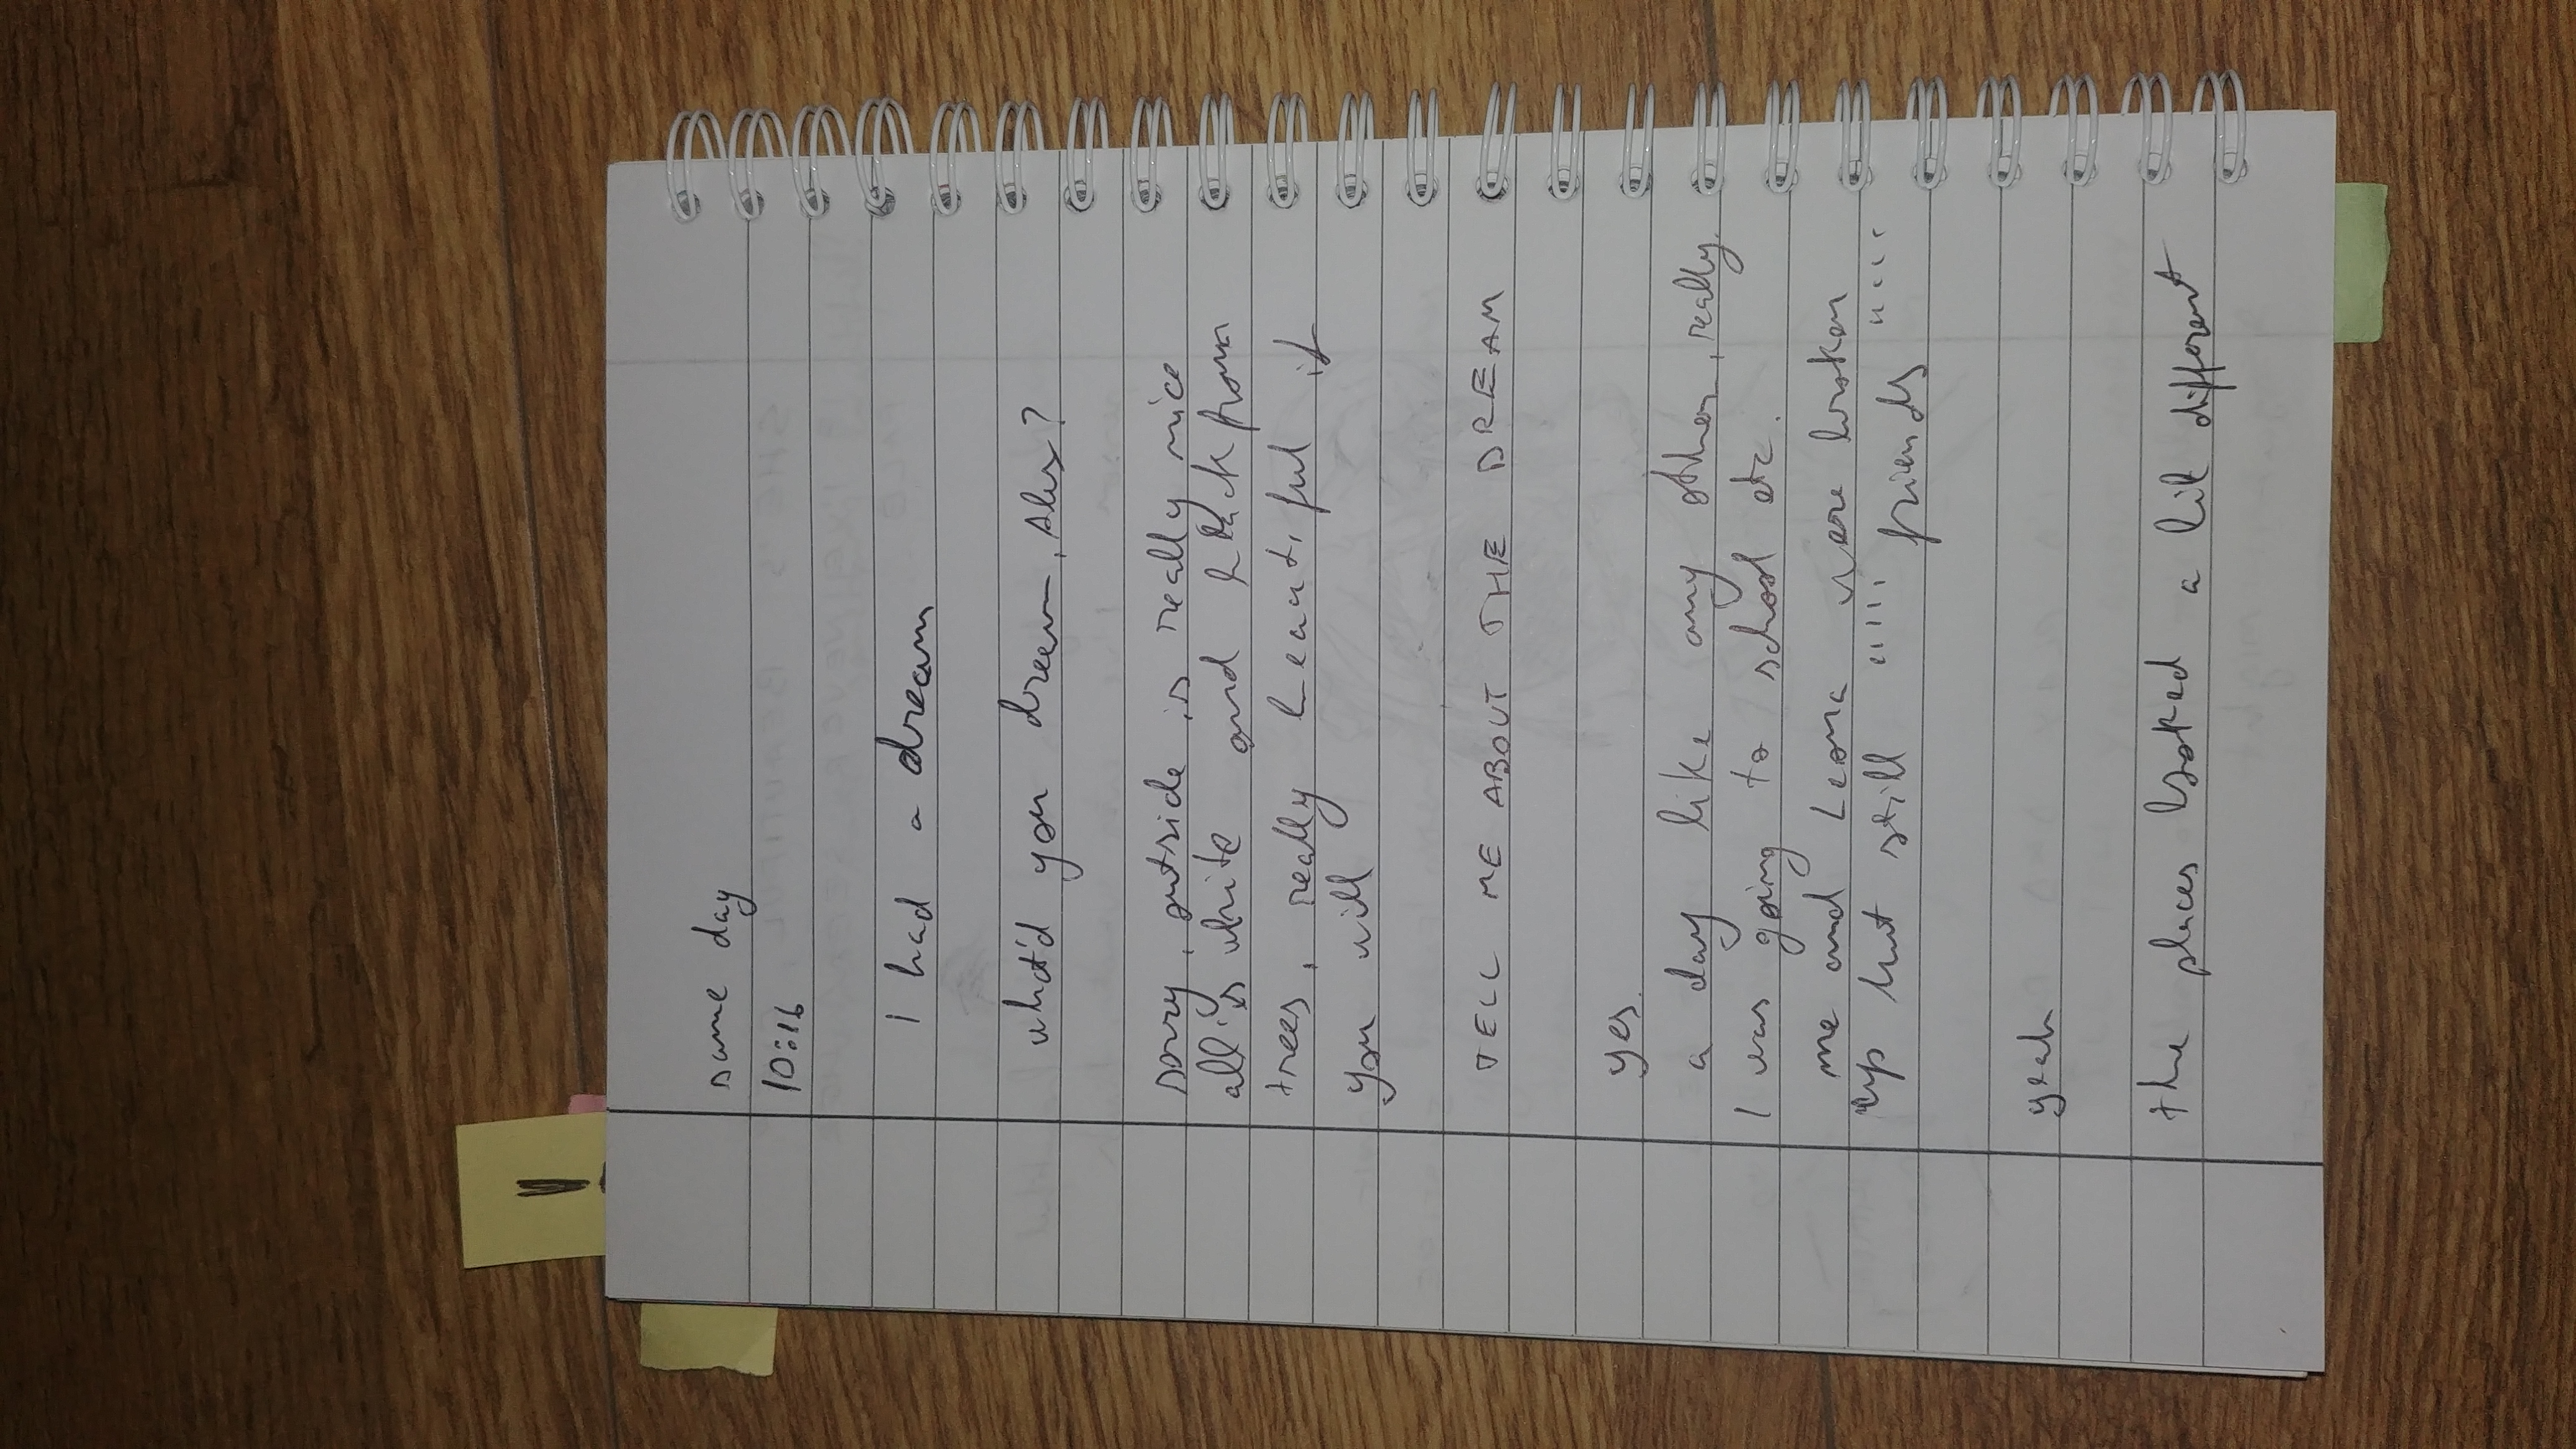 !
same day
10:16
I had a dream
what'd you dream, Alex?
sorry, outside is really nice
all is white and black from
trees, really beautiful if
you will
TELL ME ABOUT THE DREAM
yes.
a day like any other, really.
I was going to school etc.
me and Leona were broken
up but still """ friends """
yeah
the places looked a lil different